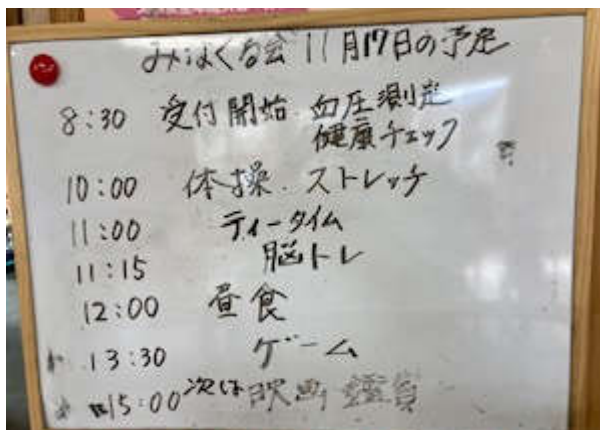 みはくる会 11月17日の予定
8:30 受付開始 血圧測定
健康チェック
10:00 体操.ストレッチ
11:00 ティータイム
11:15 脳トレ
12:00 昼食
13:30 ゲーム
15:00 次は映画鑑賞